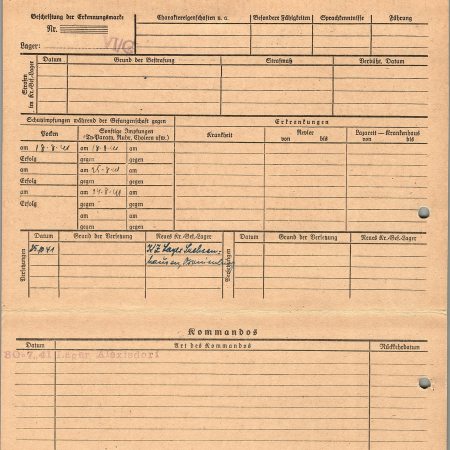 Beschriftung der Erkennungsmarke
Charaktereigenschaften u. a.
Besondere Fähigkeiten
Sprachkenntnisse
Führung
Nr.
Lager: VI/C
Strafen im Kr.-Gef.-Lager
Datum
Grund der Bestrafung
Strafmaß
Verbüßt, Datum
Schutzimpfungen während der Gefangenschaft gegen
Erkrankungen
Pocken
Sonstige Impfungen
(Ty-Paraty, Ruhr, Cholera usw.)
Krankheit
Revier
von bis
Lazarett — Krankenhaus
von bis
am 18-8-41 am 18-8-41 am
Erfolg gegen gegen
am am 25-8-41 am
Erfolg gegen gegen
am am am
Erfolg gegen gegen
am am
gegen gegen
Versetzungen
Datum
Grund der Versetzung
Neues Kr.-Gef.-Lager
Versetzungen
Datum
Grund der Versetzung
Neues Kr.-Gef.-Lager
KZ Lager Sachsen-
hausen, Oranienburg
Kommandos
Datum
Art des Kommandos
Rückkehrdatum
30.7.41 Lager Alexisdorf